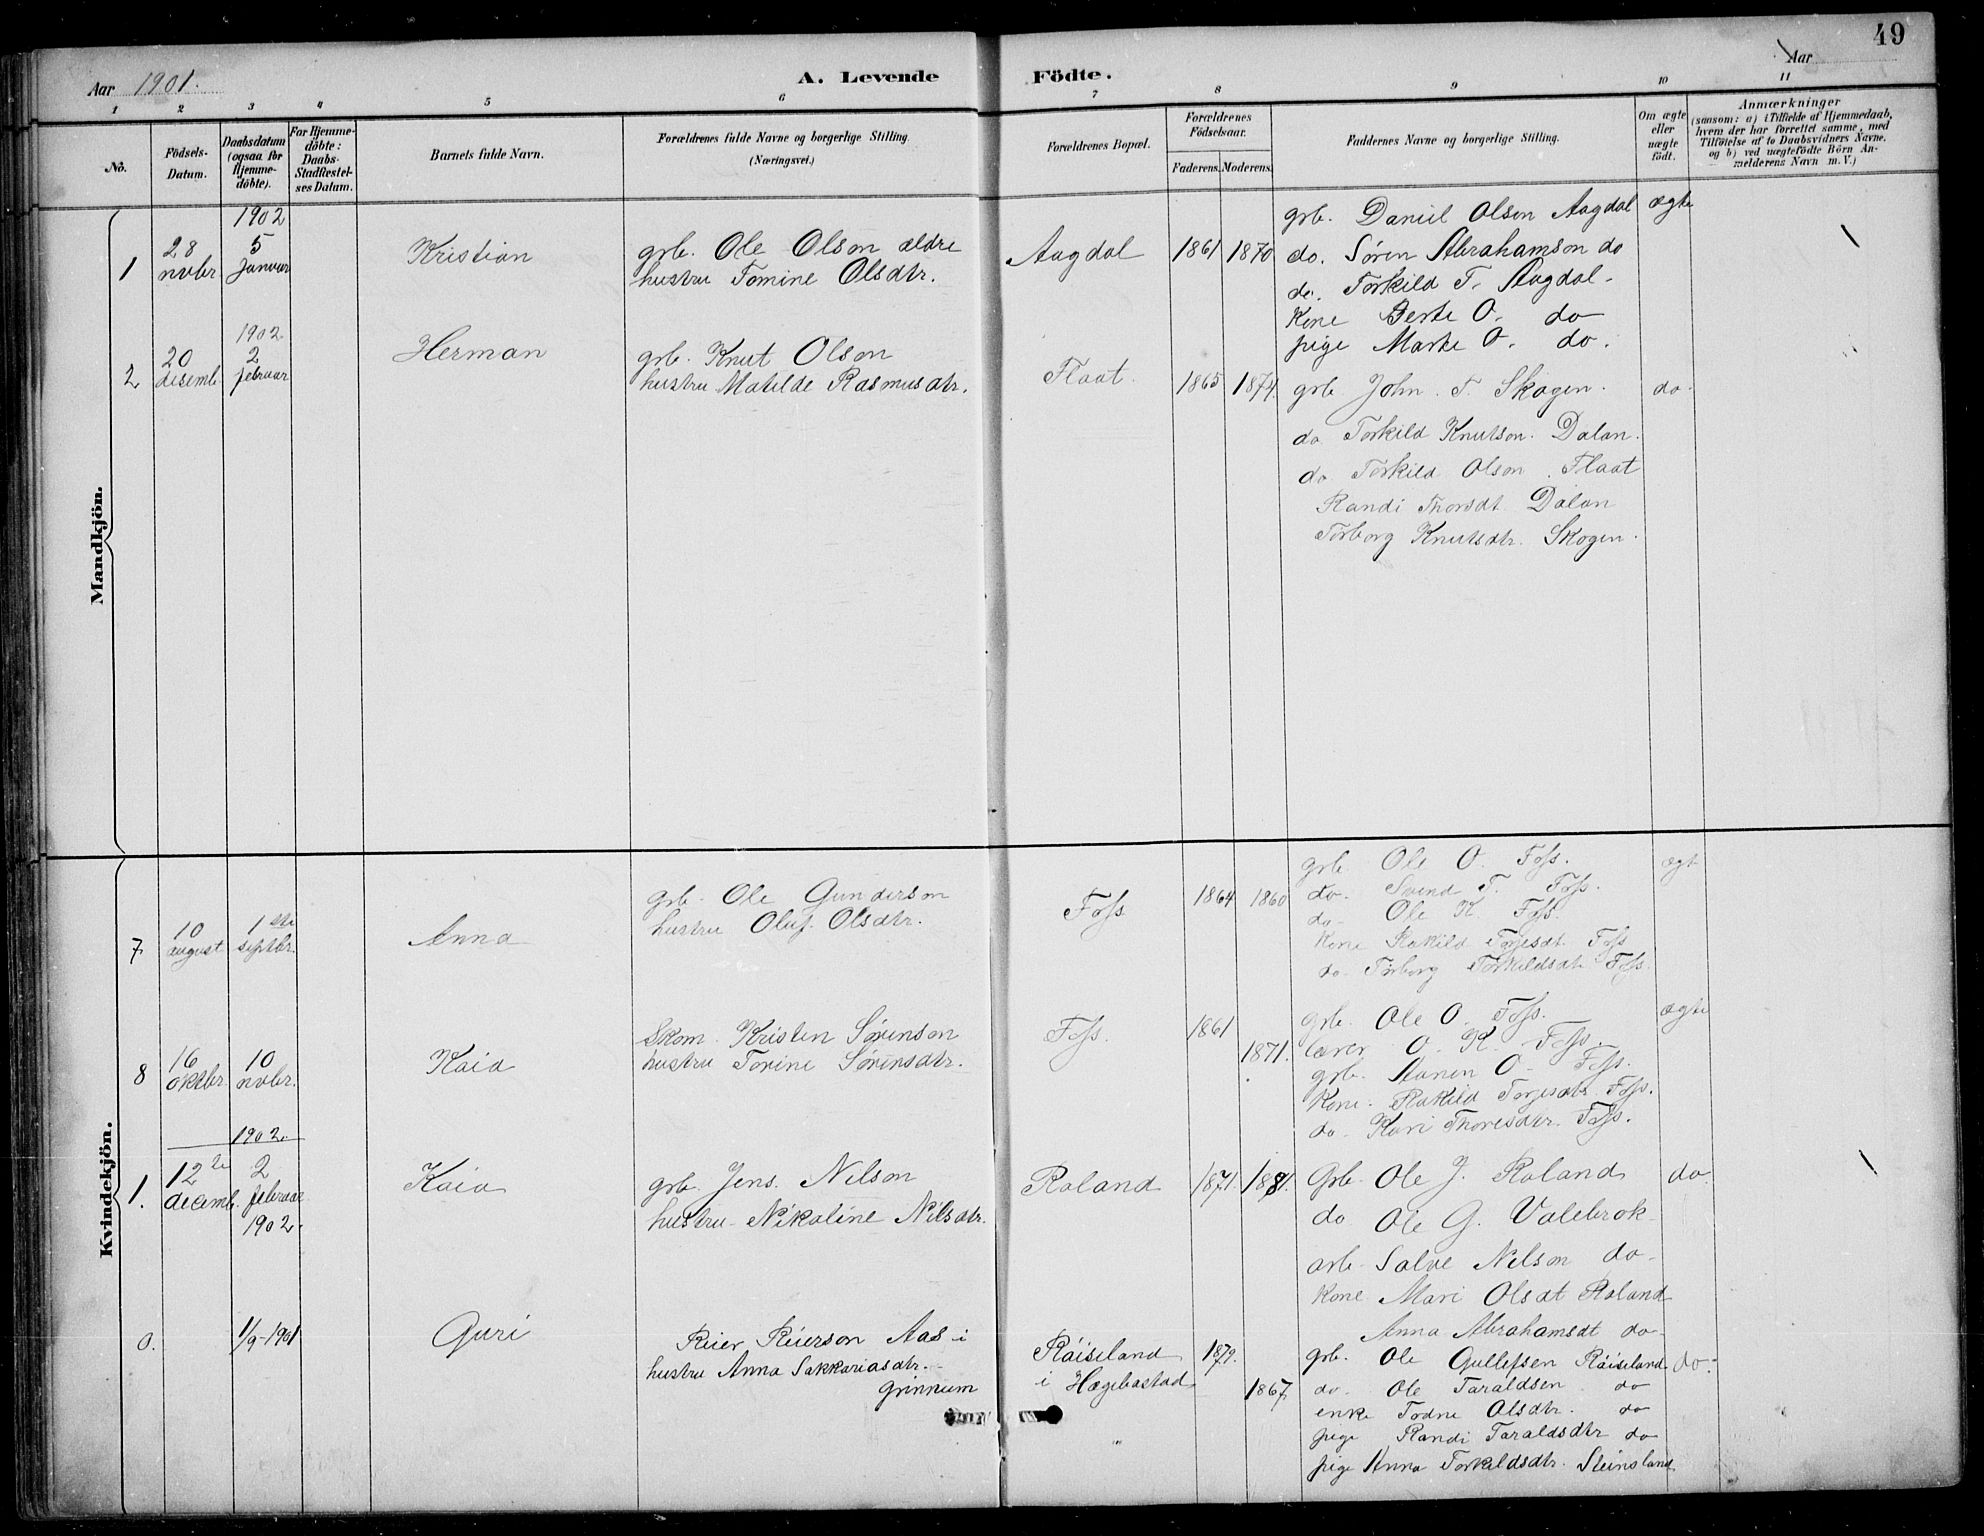 49
Aar 1901.
A. Levende Födte.
Aar
1 2 3 4 5 6 7 8 9 10 11
No.
Födsels-Datum.
Daabsdatum (ogsaa for Hjemme-döbte).
For Hjemme-döbte: Daabs-Stadfæstel-ses Datum.
Barnets fulde Navn.
Forældrenes fulde Navne og borgerlige Stilling. (Næringsvei.)
Forældrenes Bopæl.
Forældrenes Födselsaar.
Faderens. Moderens.
Faddernes Navne og borgerlige Stilling.
Om ægte eller uægte födt.
Anmærkninger
(saasom: a) i Tilfælde af Hjemmedaab, hvem der har forrettet samme, med Tilföielse af to Daabsvidners Navne, og b) ved uægtefödte Börn An-melderens Navn m. V.)
Mandkjön.
1
28 novbr
1902 5 Januar
Kristian
grb. Ole Olson ældre
hustru Tomine Olsdtr.
Aagdal
1861 1870
grb. Daniel Olson Aagdal
do. Søren Abrahamson do
do. Torkild T. Aagdal.
Kone Berte O. do
pige Marte O. do.
ægte
2
20 desemb.
1902 2 februar
Herman
grb. Knut Olson
hustru Matilde Rasmusdtr.
Flaat.
1865 1874.
grb John T. Skogen.
do Torkild Knutson. Dalan.
do Torkild Olson. Flaat
Randi Thorsdt. Dalan
Torborg Knutsdtr. Skogen.
do.
Kvindekjön.
7
10 august
1ste septbr.
Anna
grb. Ole Gunderson
hustru Oluf. Olsdtr.
Foss
1864 1860
grb. Ole O. Foss.
do. Svend T. Foss.
do. Ole K. Foss.
Kone Rakild Torjesdt. Foss
do. Torborg Torkildsdt. Foss.
ægt
8
16 oktbr.
10 novbr.
Kaia
Skom. Kristen Sørenson
hustru Tomine Sørensdtr.
Foss.
1861
1871.
grb. Ole O. Foss.
lærer O. K. Foss.
grb. Aanen O. Foss.
Kone. Rakild Torjesdtr. Foss.
do. Kari Thoresdtr. Foss.
ægte
1902.
1.
12te decemb.
2 februar 1902.
Kaia
grb. Jens. Nilson
hustru Nikoline Nilsdtr.
Roland
1871. 1881.
Grb. Ole J. Roland
do Ole G. Valebrok
arb. Salve Nilson do.
Kone Mari Olsdt Roland
Anna Abrahamsdt do.
do.
0.
1/9-1901
Guri
Reier Reierson Aas i
hustru Anna Sakkariasdtr.
Grinnum
Røiseland
i Hægebostad
1879.
1867.
grb. Ole Gullefsen Røiseland
do. Ole Taraldsen do
enke Todne Olsdtr. do
pige Randi Taraldsdtr do
pige Anna Torkildsdtr. Steinsland
do.